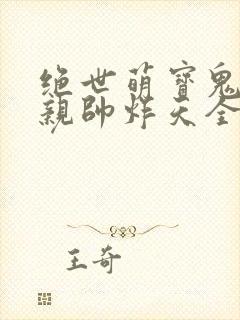 绝世萌寶鬼
親帥炸天全
王奇